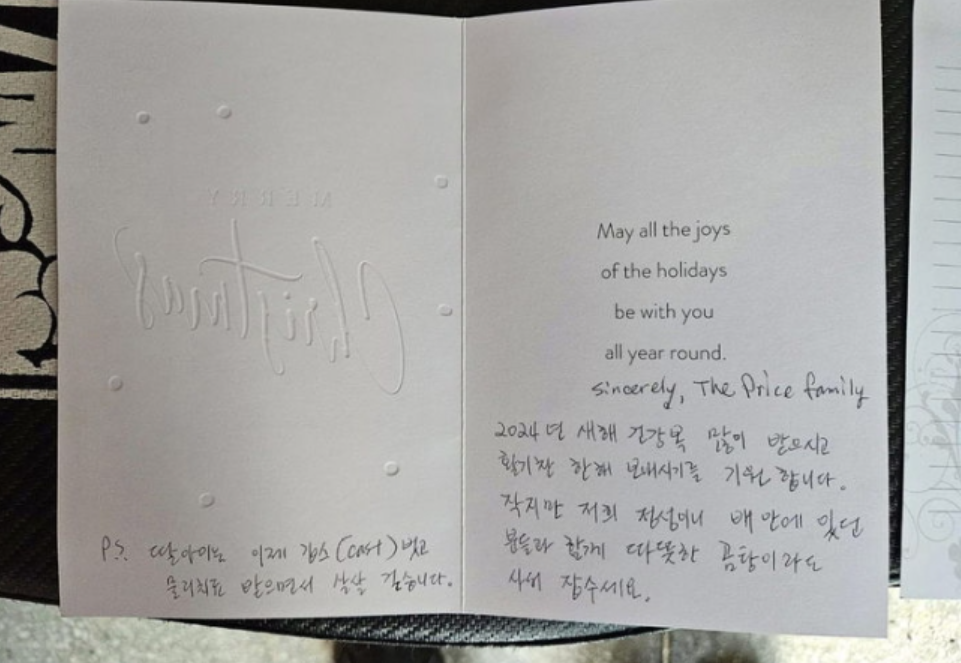 MERRY
Christmas
P.S. 딸아이는 이제 깁스(cast)벗고
물리치료 받으면서 살살 걷습니다.
May all the joys
of the holidays
be with you
all year round.
sincerely, The Price family
2024년 새해 건강복 많이 받으시고
활기찬 한해 보내시기를 기원 합니다.
작지만 저희 정성이니 배 안에 있던
분들과 함께 따뜻한 곰탕이라도
사서 잡수세요.